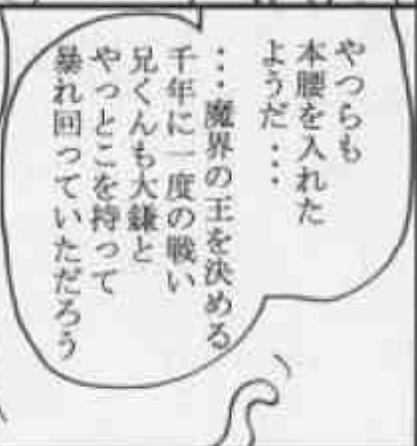 やつらも
本腰を入れた
ようだ・・・
・・・魔界の王を決める
千年に一度の戦い
兄くんも大鎌と
やっとこを持って
暴れ回っていただろう